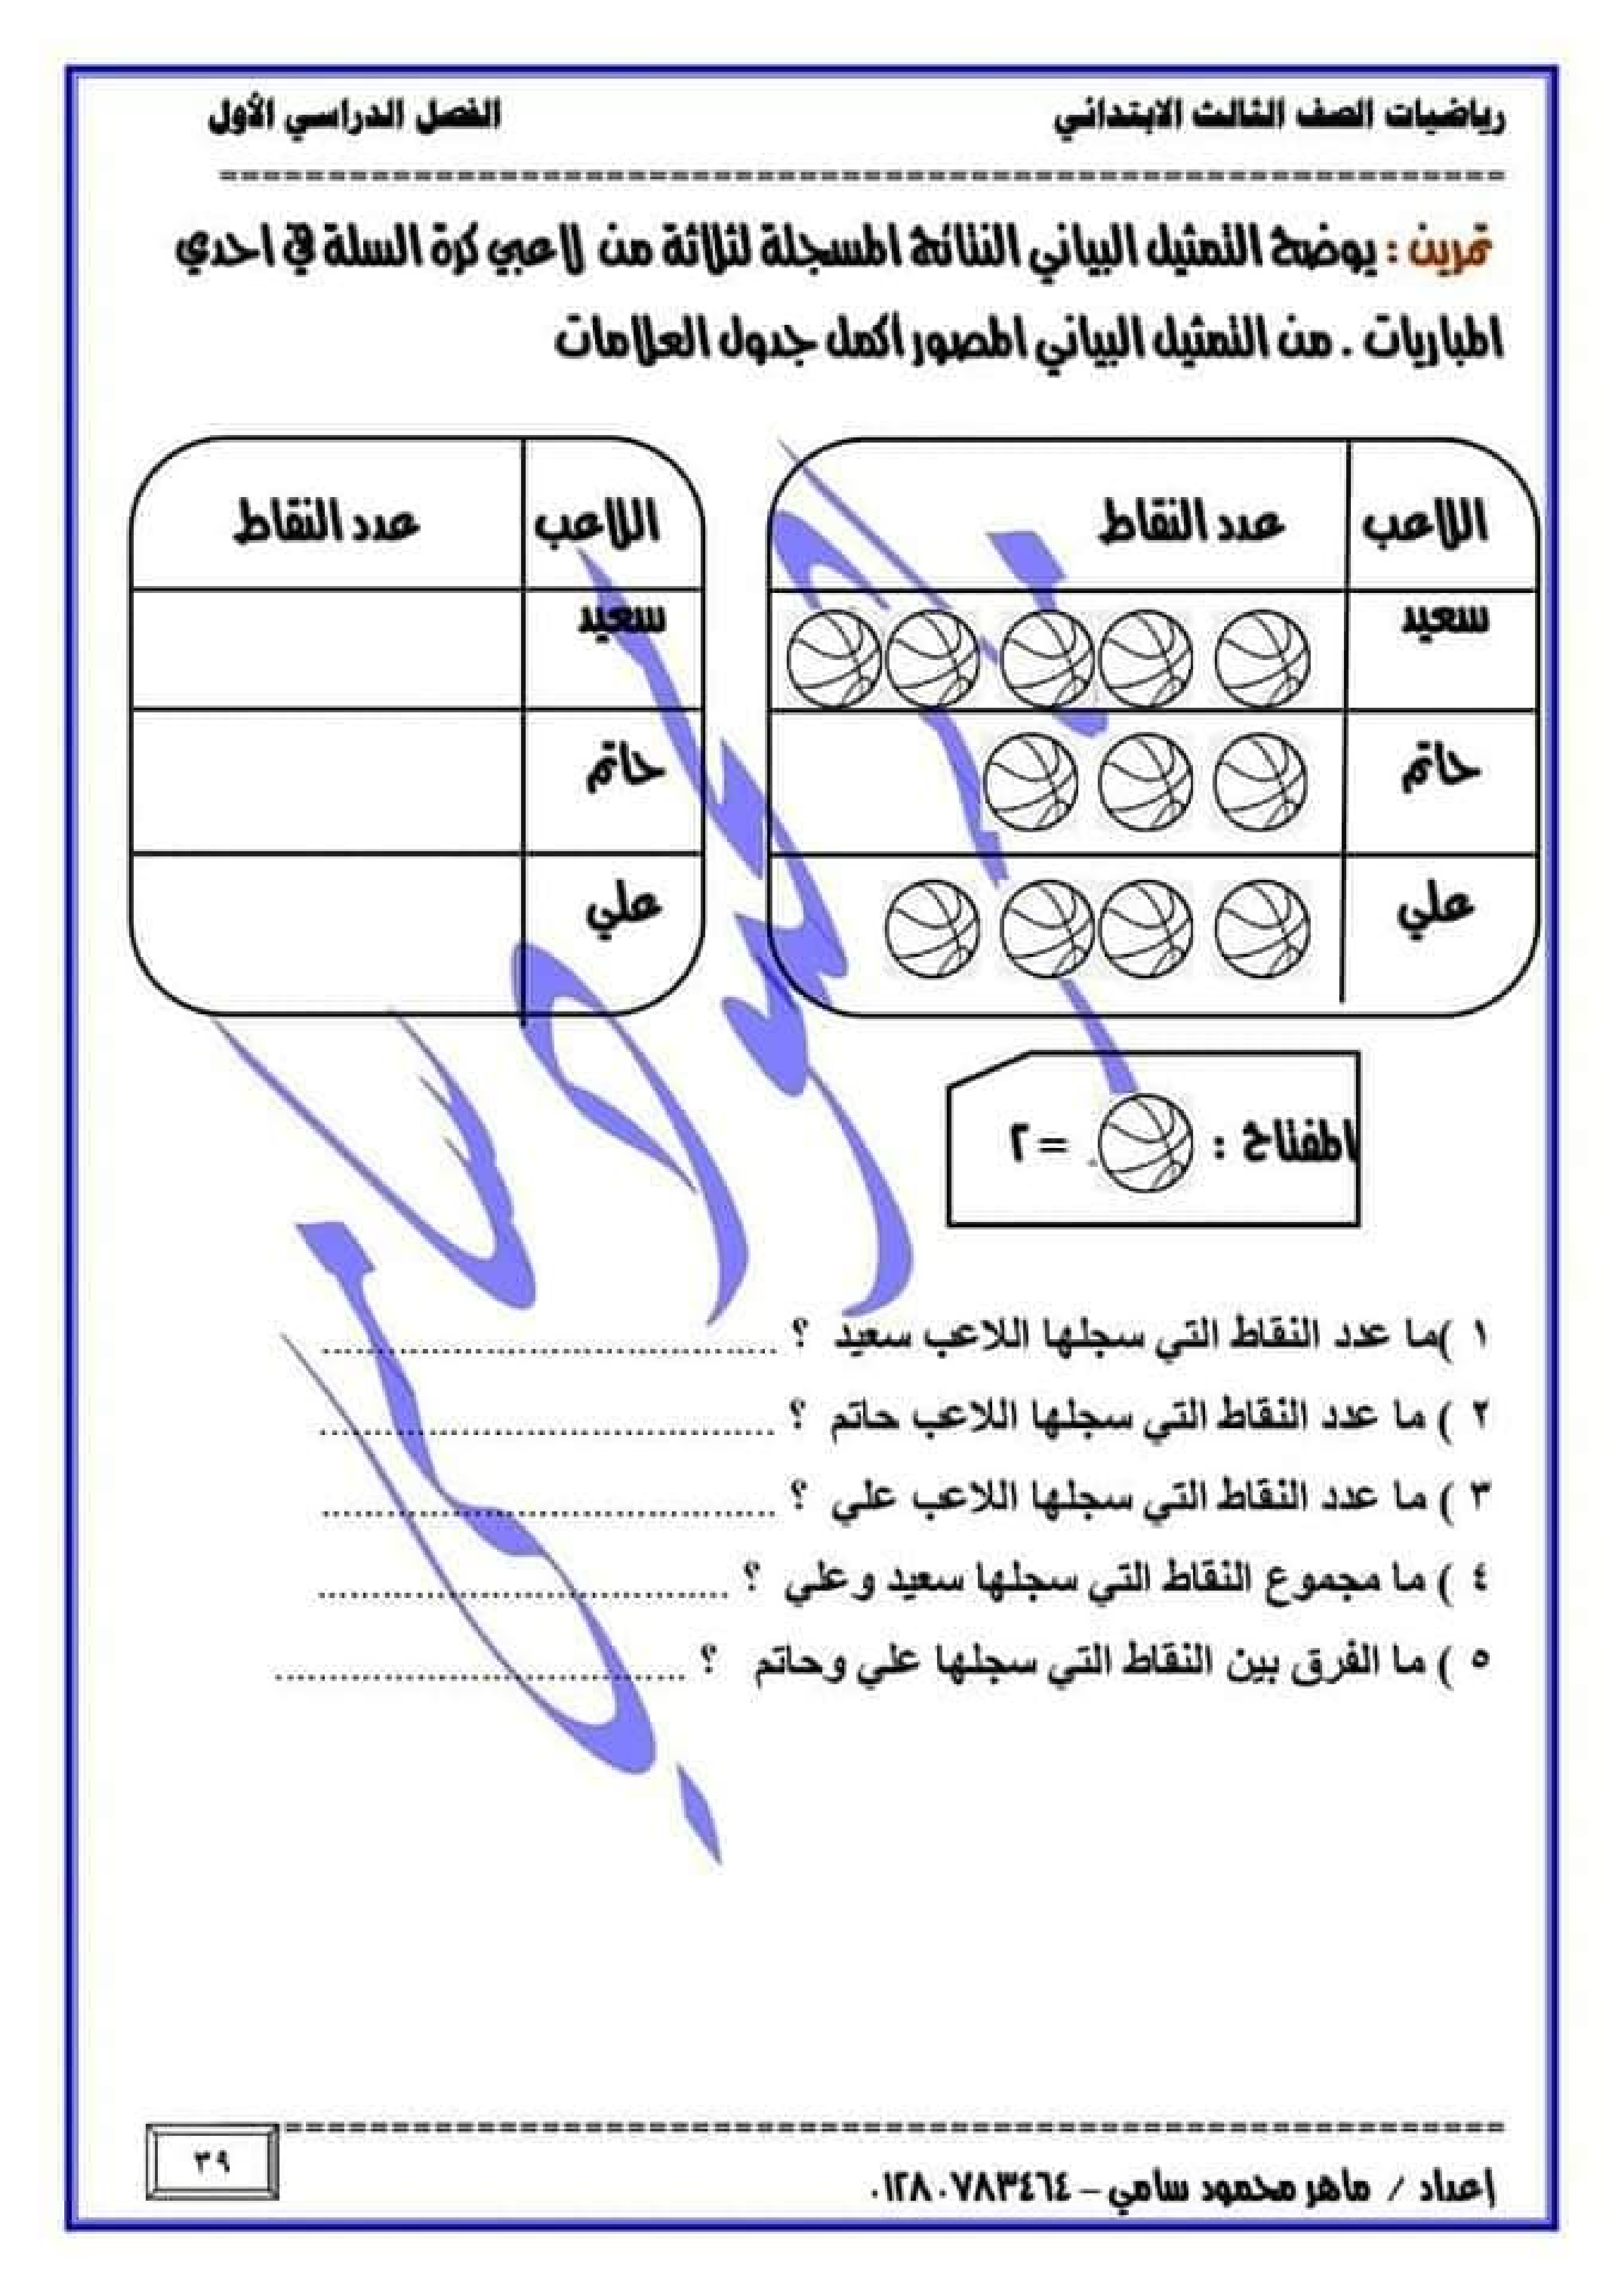 رياضيات الصف الثالث الابتدائي الفصل الدراسي الأول
تمرين : يوضح التمثيل البياني النتائج المسجلة لثلاثة من لاعبي كرة السلة في احدي
المباريات . من التمثيل البياني المصور أكمل جدول العلامات
اللاعب عدد النقاط
سعيد
حاتم
علي
اللاعب عدد النقاط
سعيد
حاتم
علي
المفتاح : = ٢
١ )ما عدد النقاط التي سجلها اللاعب سعيد ؟ ......................................
٢ ) ما عدد النقاط التي سجلها اللاعب حاتم ؟ ......................................
٣ ) ما عدد النقاط التي سجلها اللاعب علي ؟ ......................................
٤ ) ما مجموع النقاط التي سجلها سعيد وعلي ؟ ..................................
٥ ) ما الفرق بين النقاط التي سجلها علي وحاتم ؟ ..................................
٣٩
إعداد / ماهر محمود سامي – ٠١٢٨٠٧٨٣٤٦٤